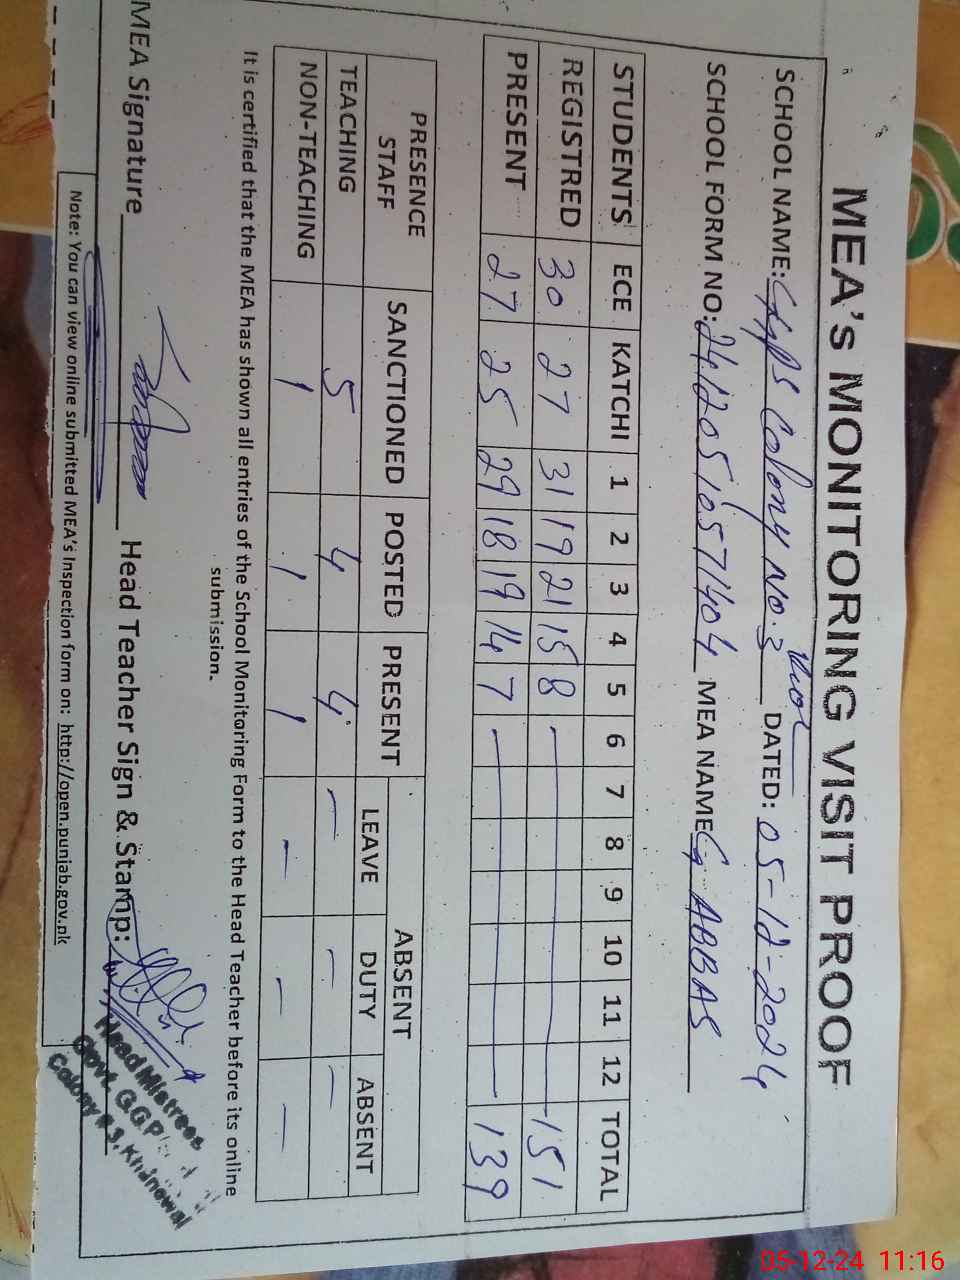 MEA's MONITORING VISIT PROOF
SCHOOL NAME: GGPS Colony No.3 DATED: 05-12-2024
SCHOOL FORM NO: MEA NAME G ABBAS
STUDENTS ECE KATCHI 1 2 3 4 5 6 7 8 9 10 11 12 TOTAL
REGISTRED 30 27 31 19 21 15 8 — 151
PRESENT 27 25 29 18 19 14 7 — 139
PRESENCE STAFF SANCTIONED POSTED PRESENT ABSENT
LEAVE DUTY ABSENT
TEACHING 5 4 4 — — —
NON-TEACHING 1 1 1 — — —
It is certified that the MEA has shown all entries of the School Monitoring Form to the Head Teacher before its online
submission.
MEA Signature Head Teacher Sign & Stamp:
Head Mistrees
Govt. GGP
Colony # 3, Khanewal
Note: You can view online submitted MEA's Inspection form on: http://open.punjab.gov.pk
05-12-24 11:16